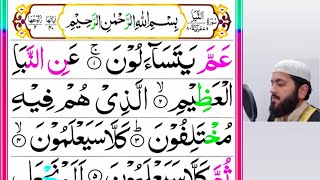 بِسْمِ اللّٰهِ الرَّحْمٰنِ الرَّحِيْمِ
عَمَّ يَتَسَآءَلُوْنَ ۚ ١ عَنِ النَّبَاِ
الْعَظِيْمِ ۙ ٢ الَّذِيْ هُمْ فِيْهِ
مُخْتَلِفُوْنَ ؕ ٣ كَلَّا سَيَعْلَمُوْنَ ۙ ٤
ثُمَّ كَلَّا سَيَعْلَمُوْنَ ٥ اَلَمْ نَجْعَلِ